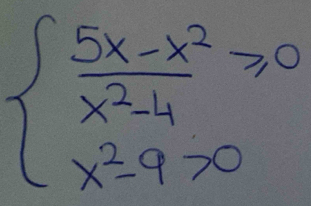 { (5x - x²)/(x² - 4) ⩾ 0
x² - 9 > 0